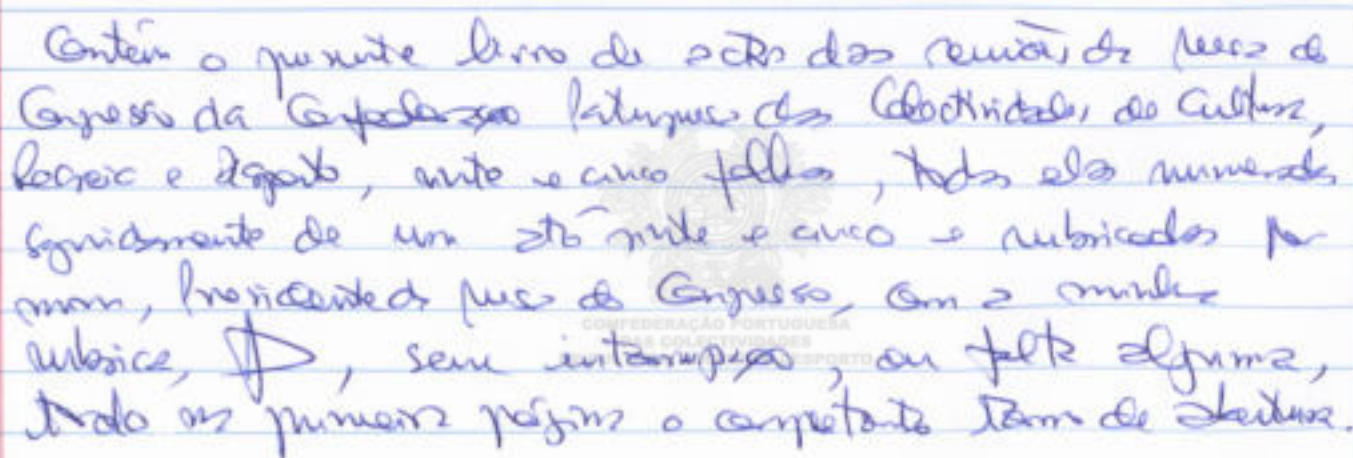 Contém o presente livro de actas das reuniões da Mesa do
Congresso da Confederação Portuguesa das Colectividades de Cultura,
Recreio e Desporto, vinte e cinco folhas, todas elas numeradas
seguidamente de um até vinte e cinco e rubricadas por
mim, Presidente da Mesa do Congresso, com a minha
rubrica, , sem interrupção, ou falta alguma,
tendo na primeira página o competente termo de abertura.
CONFEDERAÇÃO PORTUGUESA
DAS COLECTIVIDADES